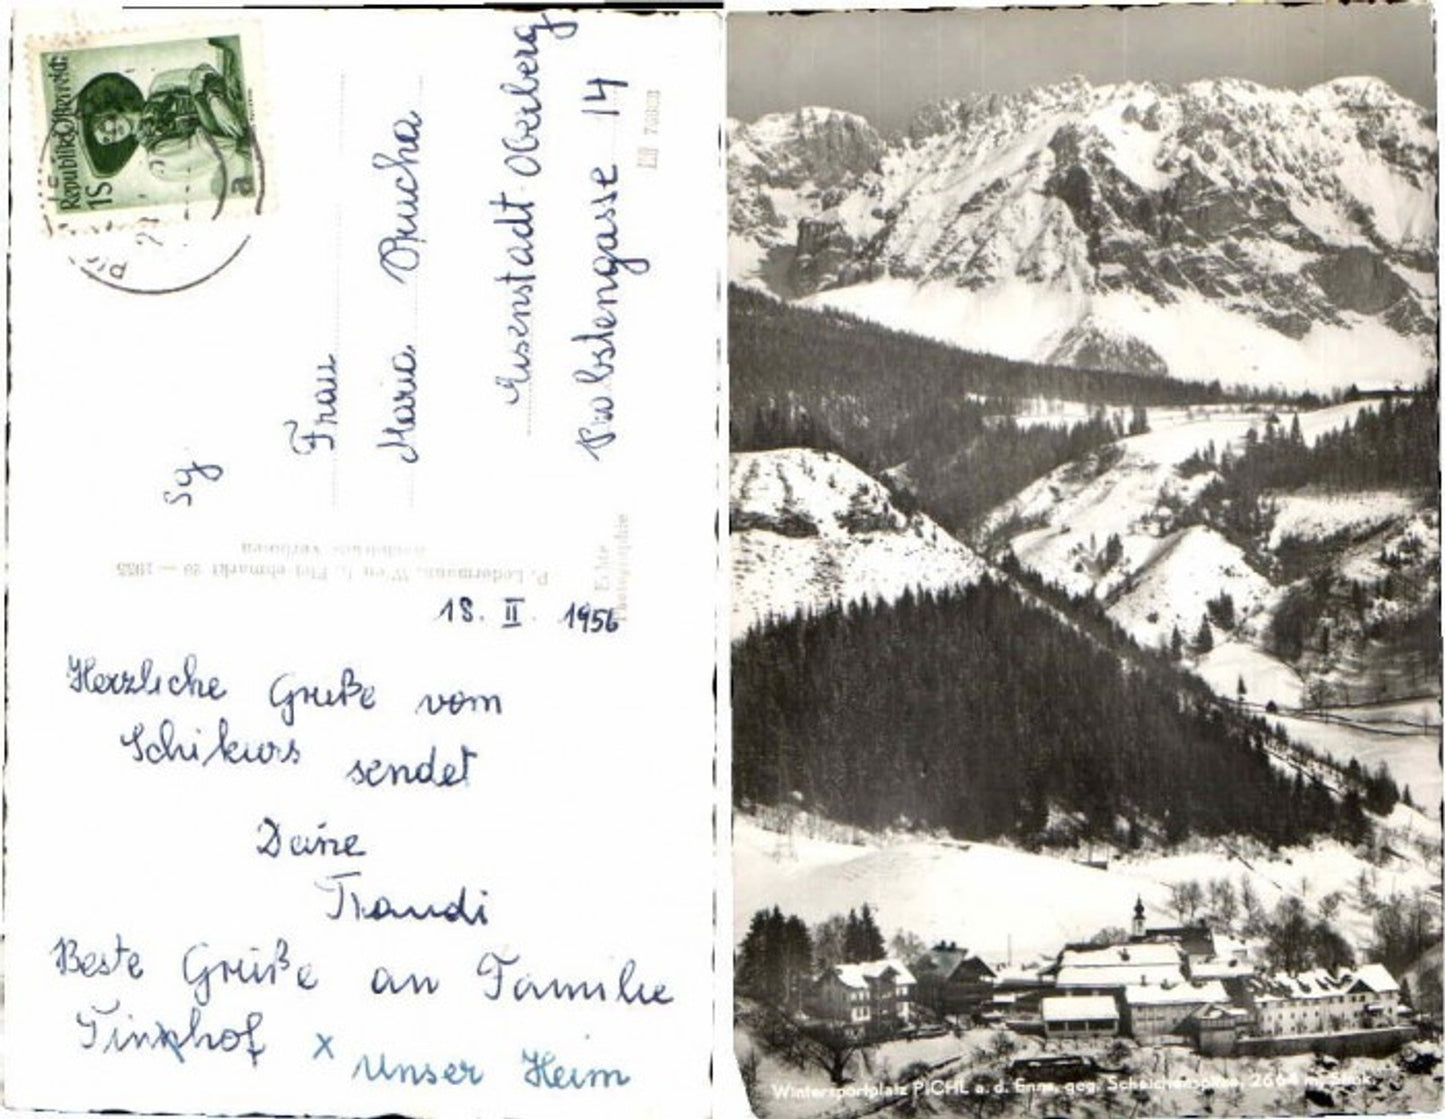 Republik Österreich
1S
a
Sg
Frau
Maria Prucha
Eisenstadt-Oberberg
14
P. Ledermann, Wien I., Fleischmarkt 20 — 1955
Wiederdruck verboten
Echte
Photographie
18. II. 1956
Herzliche Grüße vom
Schikurs sendet
Deine
Traudi
Beste Grüße an Familie
x Unser Heim
Wintersportplatz PICHL a. d. Enns, geg. Scheichenspitze, 2664 m, Stmk.